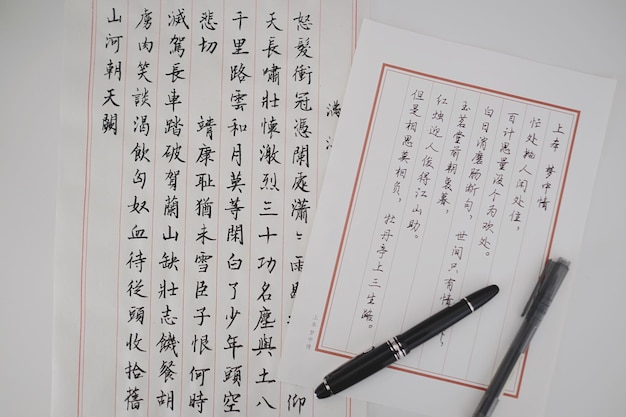 滿
怒髮衝冠憑闌處瀟〻雨 仰
天長嘯壯懷激烈三十功名塵與土八
千里路雲和月莫等閒白了少年頭空
悲切 靖康恥猶未雪臣子恨何時
滅駕長車踏破賀蘭山缺壯志饑餐胡
虜肉笑談渴飲匈奴血待從頭收拾舊
山河朝天闕
上本 梦中情
忙处抛人闲处住，
百计思量没个为欢处。
白日消磨肠断句，世间只有情
玉茗堂前朝复暮，
红烛迎人俊得江山助。
但是相思莫相负，牡丹亭上三生路。